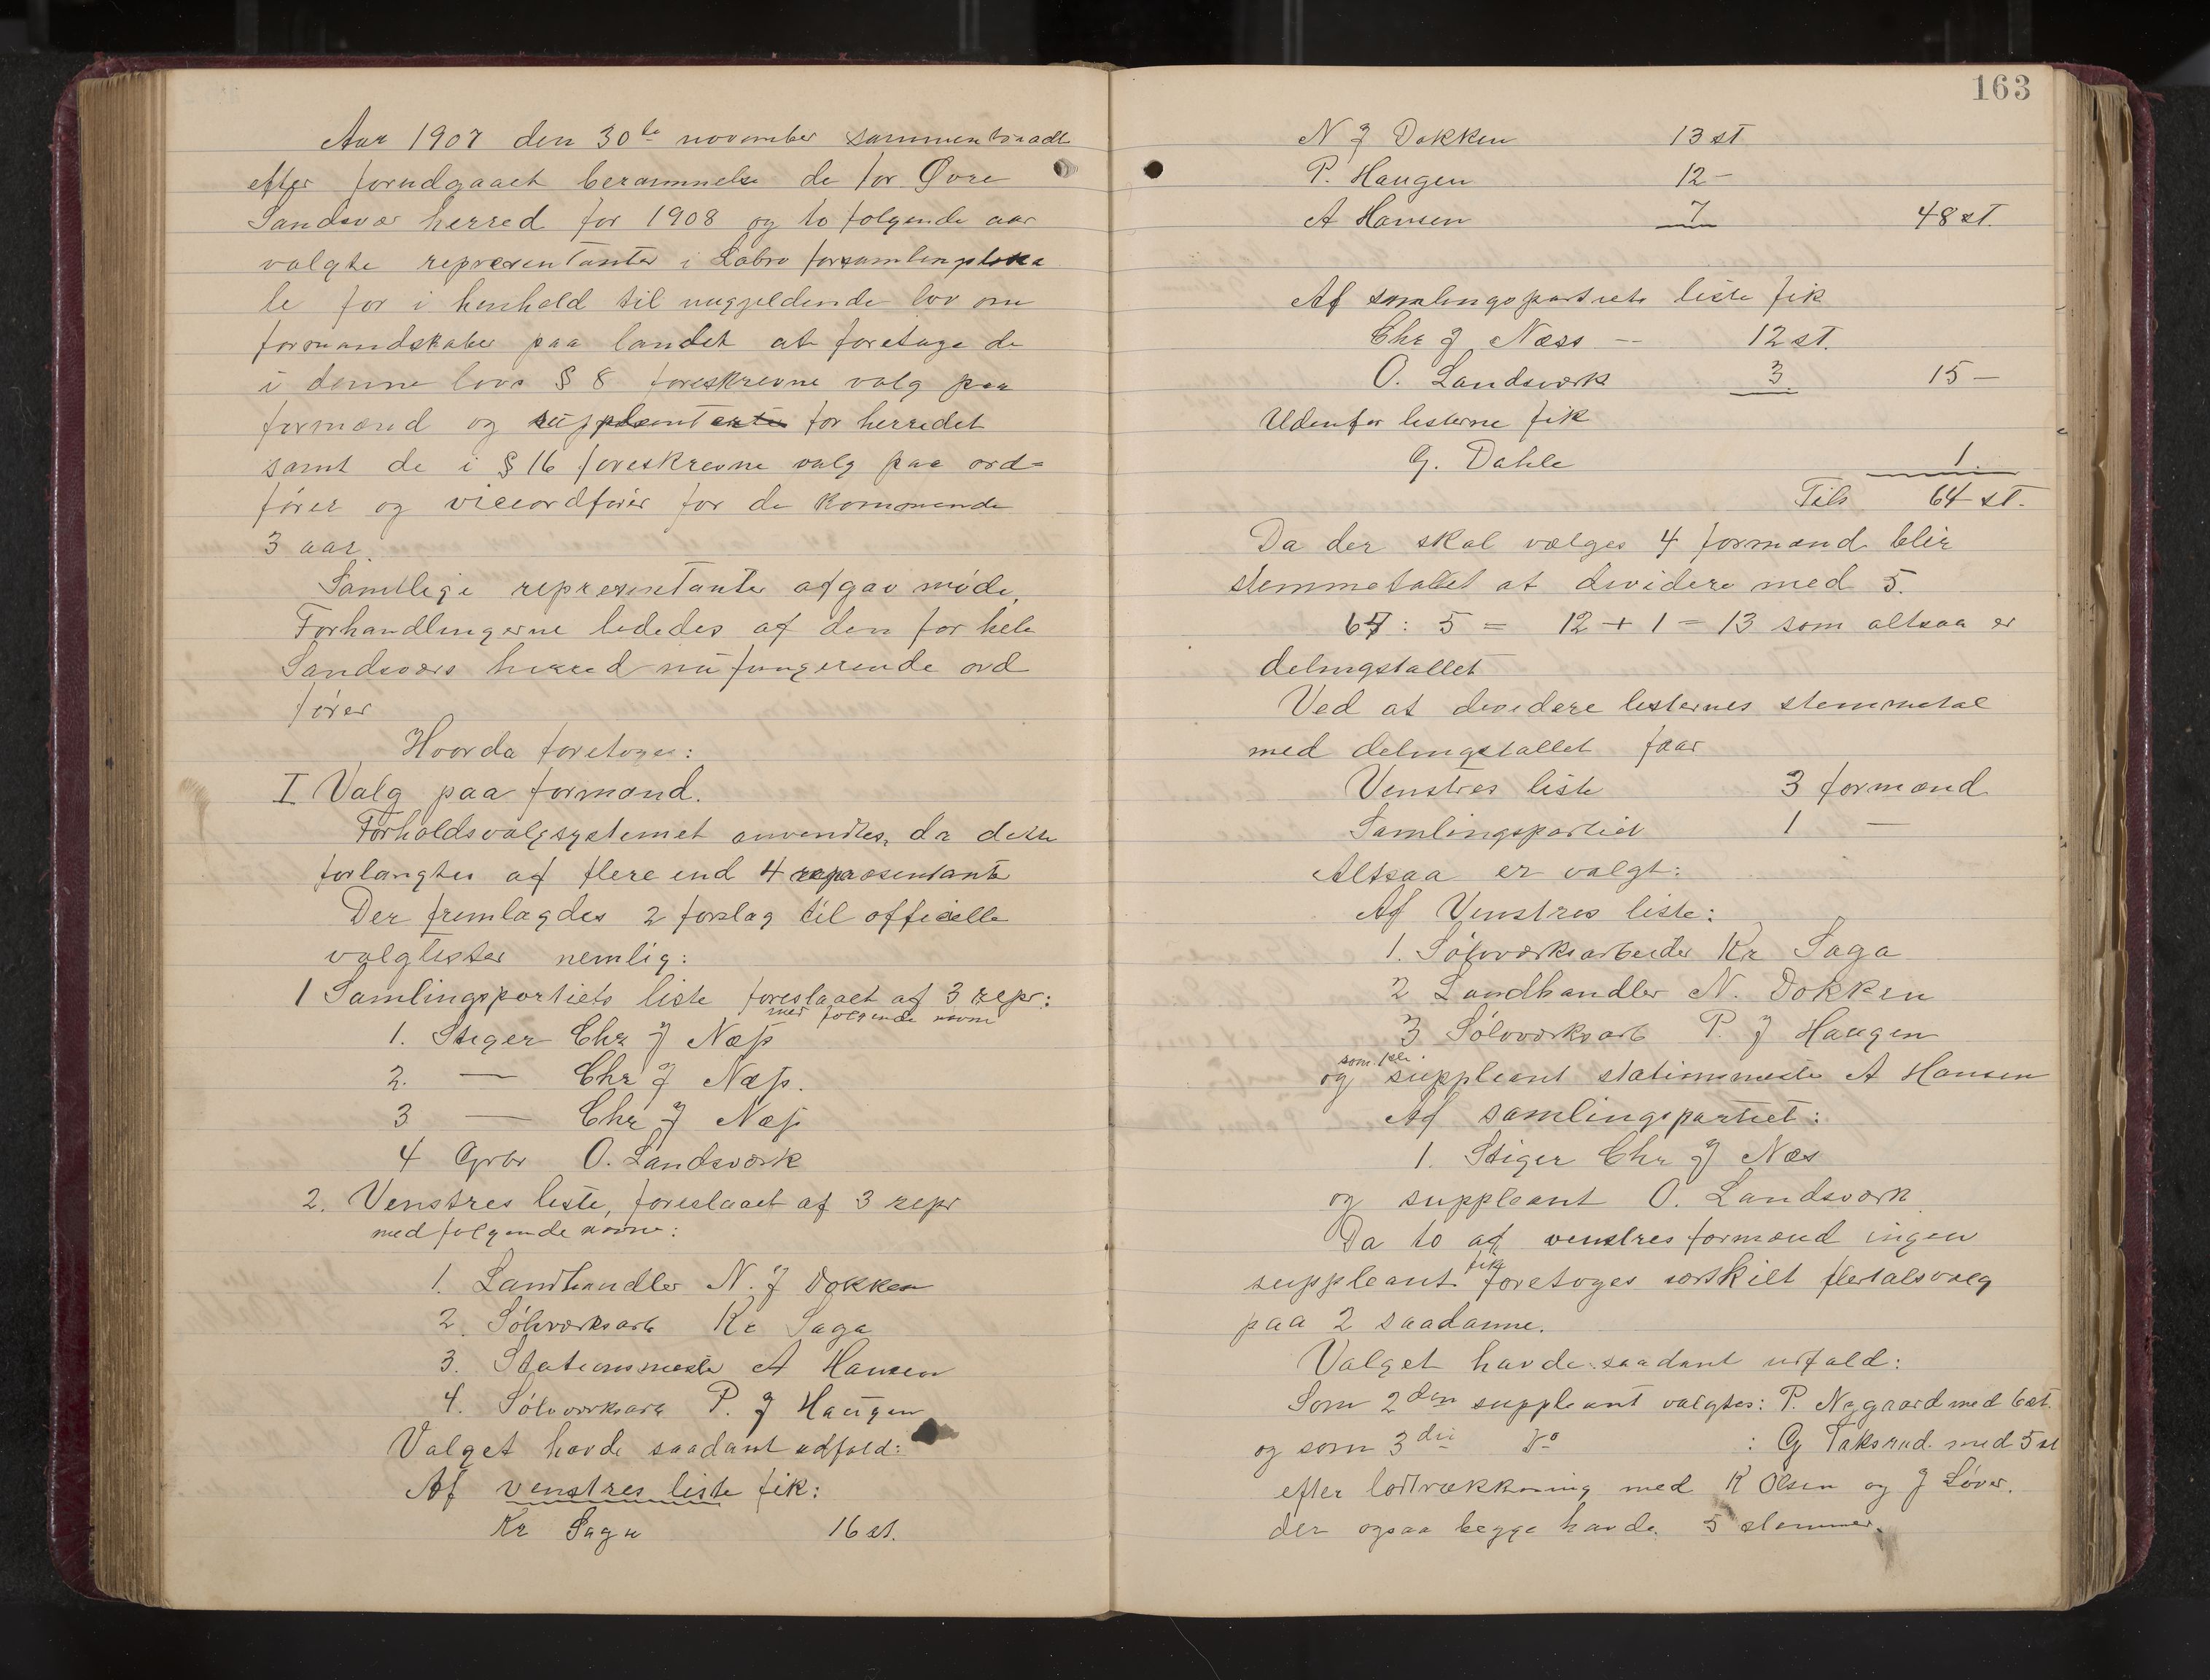 Aar 1907 den 30te november sammentraadte
efter forudgaaet berammelse de for Øvre
Sandsvær herred for 1908 og to følgende aar
valgte representanter i Labro forsamlingsloka
le for i henhold til nugjeldende lov om
formandskaber paa landet at foretage de
i denne lovs § 8 foreskrevne valg paa
formænd og suppleanter for herredet
samt de i § 16 foreskrevne valg paa ord=
fører og viceordfører for de kommende
3 aar.
Samtlige representanter afgav møde.
Forhandlingerne lededes af den for hele
Sandsværs herred nu fungerende ord
fører
Hvorda foretoges:
I Valg paa formænd.
Forholdsvalgsystemet anvendtes, da dette
forlangtes af flere end 4 repræsentante
Der fremlagdes 2 forslag til officielle
valglister nemlig:
1 Samlingspartiets liste foreslaaet af 3 repr:
med følgende navne
1. Stiger Chr J Næss
2. — Chr J Næss.
3 — Chr J Næss
4 Grbr O. Landsværk
2. Venstres liste, foreslaaet af 3 repr
med følgende navne:
1. Landhandler N. J Dokken
2. Sølvværksarb Kr Saga
3. Stationsmester A Hansen
4. Sølvværksarb P. J Haugen
Valget havde saadant udfald:
Af venstres liste fik:
Kr Saga 16 st.
163
N J Dokken 13 st
P. Haugen 12 —
A Hansen 7 48 st.
Af samlingspartiets liste fik
Chr J Næss -- 12 st.
O. Landsværk 3 15 —
Udenfor listerne fik
G. Dahle 1
Tils 64 st.
Da der skal vælges 4 formænd blir
stemmetallet at dividere med 5.
64 : 5 = 12 + 1 = 13 som altsaa er
delingstallet
Ved at dividere listernes stemmetal
med delingstallet faar
Venstres liste 3 formænd
Samlingspartiet 1 —
Altsaa er valgt:
Af Venstres liste:
1. Sølvværksarbeider Kr Saga
2 Landhandler N. Dokken
3 Sølvværksarb P. J Haugen
som 1ste
og suppleant stationsmester A Hansen
Af samlingspartiet:
1. Stiger Chr J Næs
og suppleant O. Landsværk
Da to af venstres formænd ingen
suppleant fik foretoges særskilt flertalsvalg
paa 2 saadanne.
Valget havde saadant udfald:
Som 2den suppleant valgtes: P. Nygaard med 6 st.
og som 3die do : G Taksrud med 5 st
efter lodtrækkning med K Olsen og J Løver.
der ogsaa begge havde 5 stemmer.